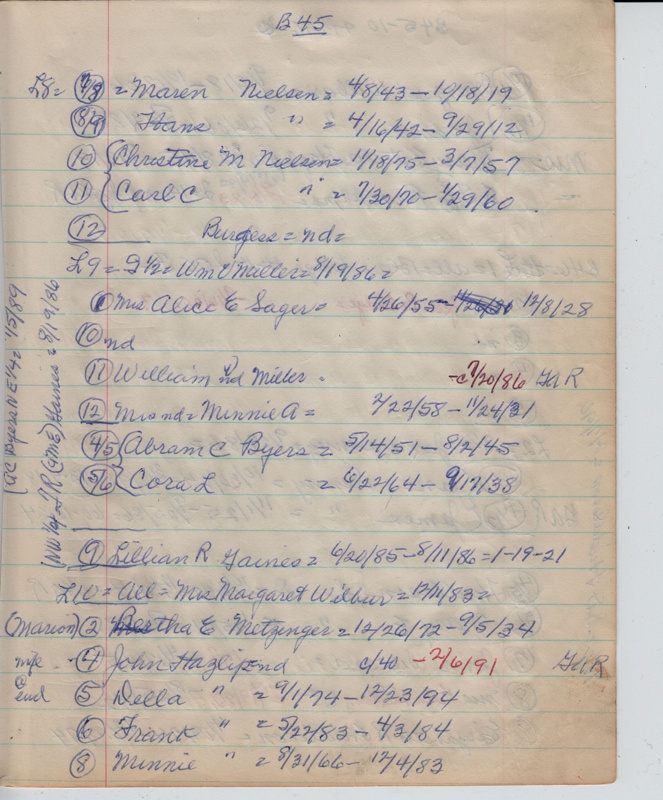 B45
L8 = 7/8 = Maren Nielsen = 4/8/43 - 10/18/19
8/9 Hans " = 4/16/42 - 9/29/12
10 Christine M Nielsen = 11/18/75 - 3/7/57
11 Carl C " = 7/30/70 - 1/29/60
12 Burgess = nd =
L9 = = Wm Miller = 8/19/86 =
Mrs Alice E Sager = 4/26/55 - 12/8/28
10 nd
11 William nd Miller - c 7/20/86 GaR
12 Mrs nd = Minnie A = 2/22/58 - 11/24/31
4/5 Abram C Byers = 5/14/51 - 8/2/45
5/6 Cora L = 6/22/64 - 9/17/38
9 Lillian R Gaines = 6/20/85 - 8/11/86 = 1-19-21
L10 = All = Mrs Margaret Wilbur = 12/11/83 =
(Marion) 2 Bertha E Metzinger = 12/26/72 - 9/5/34
4 John Hazlip nd c/40 - 2/6/91 GaR
end 5 Della " = 9/1/74 - 12/23/94
6 Frank " = 5/22/83 - 4/3/84
8 Minnie " = 8/31/66 - 12/4/83
(AC Byers NE 1/4 = 1/5/89